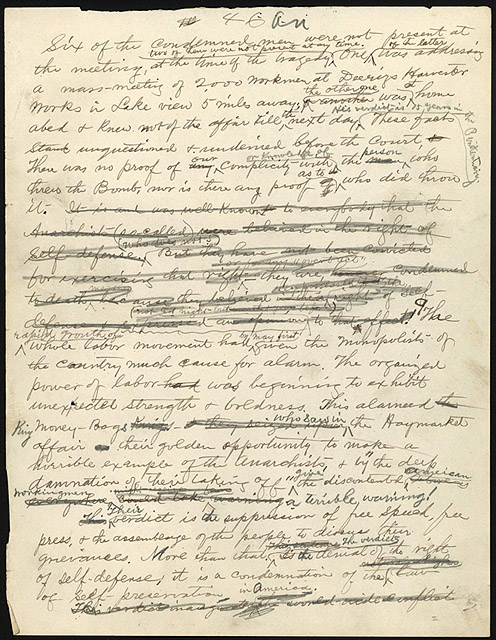 4
Six of the condemned men were not present at
two of them were not present at any time. of the latter
the meeting, at the time of the tragedy. One was addressing
a mass-meeting of 2000 workmen at Deerings Harvester
the other one
Works in Lake view 5 miles away. another was home
His verdict is 15 years in the Penitentiary
abed & knew not of the affair till the next day. These facts
stand unquestioned & undenied before the Court.
our or knowledge of person
There was no proof of any complicity with the man who
as to
threw the Bomb, nor is there any proof of who did throw
it. It is and was well known to
Anarchist (so called) were believed in the right of
(who does not?)
self-defense. But they have not been convicted
for exercising that right. they are condemned
to death, because they believed in the right of self-
defense
The
rapid growth of
whole labor movement had by may first given the monopolists of
the country much cause for alarm. The organized
power of labor had was beginning to exhibit
unexpected strength & boldness. This alarmed the
who saw in
King Money-Bags they seized upon the Haymarket
affair their golden opportunity to make a
horrible example of the Anarchists, & by "the deep
give American
damnation of their taking off" the discontented
Workingmen a terrible warning!
Their
This verdict is the suppression of free speech, free
press, & the assemblage of the people to discuss their
The verdict
grievances. More than that, is the denial of the right
of self-defense; it is a condemnation of the law
in America.
of self preservation
This verdict may world wide conflict
5